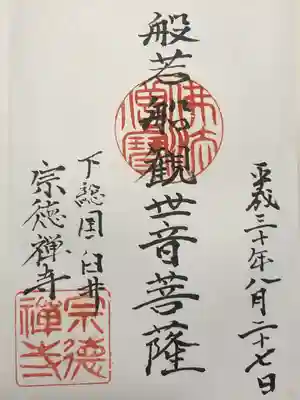 平成三十年八月二十七日
般若船観世音菩薩
佛法僧寶
下総国臼井
宗徳禅寺
宗德禪寺